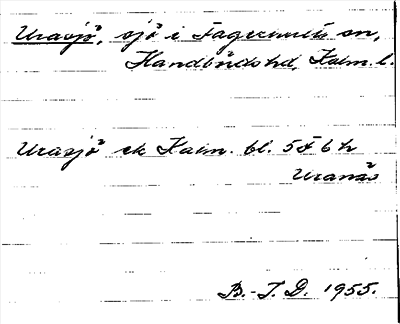 Urasjö, sjö i Fagerhults sn,
Handbörds hd, Kalm. l.
Urasjö ek Kalm. bl. 5 F 6 h
Uranäs
B.-T. D. 1955.